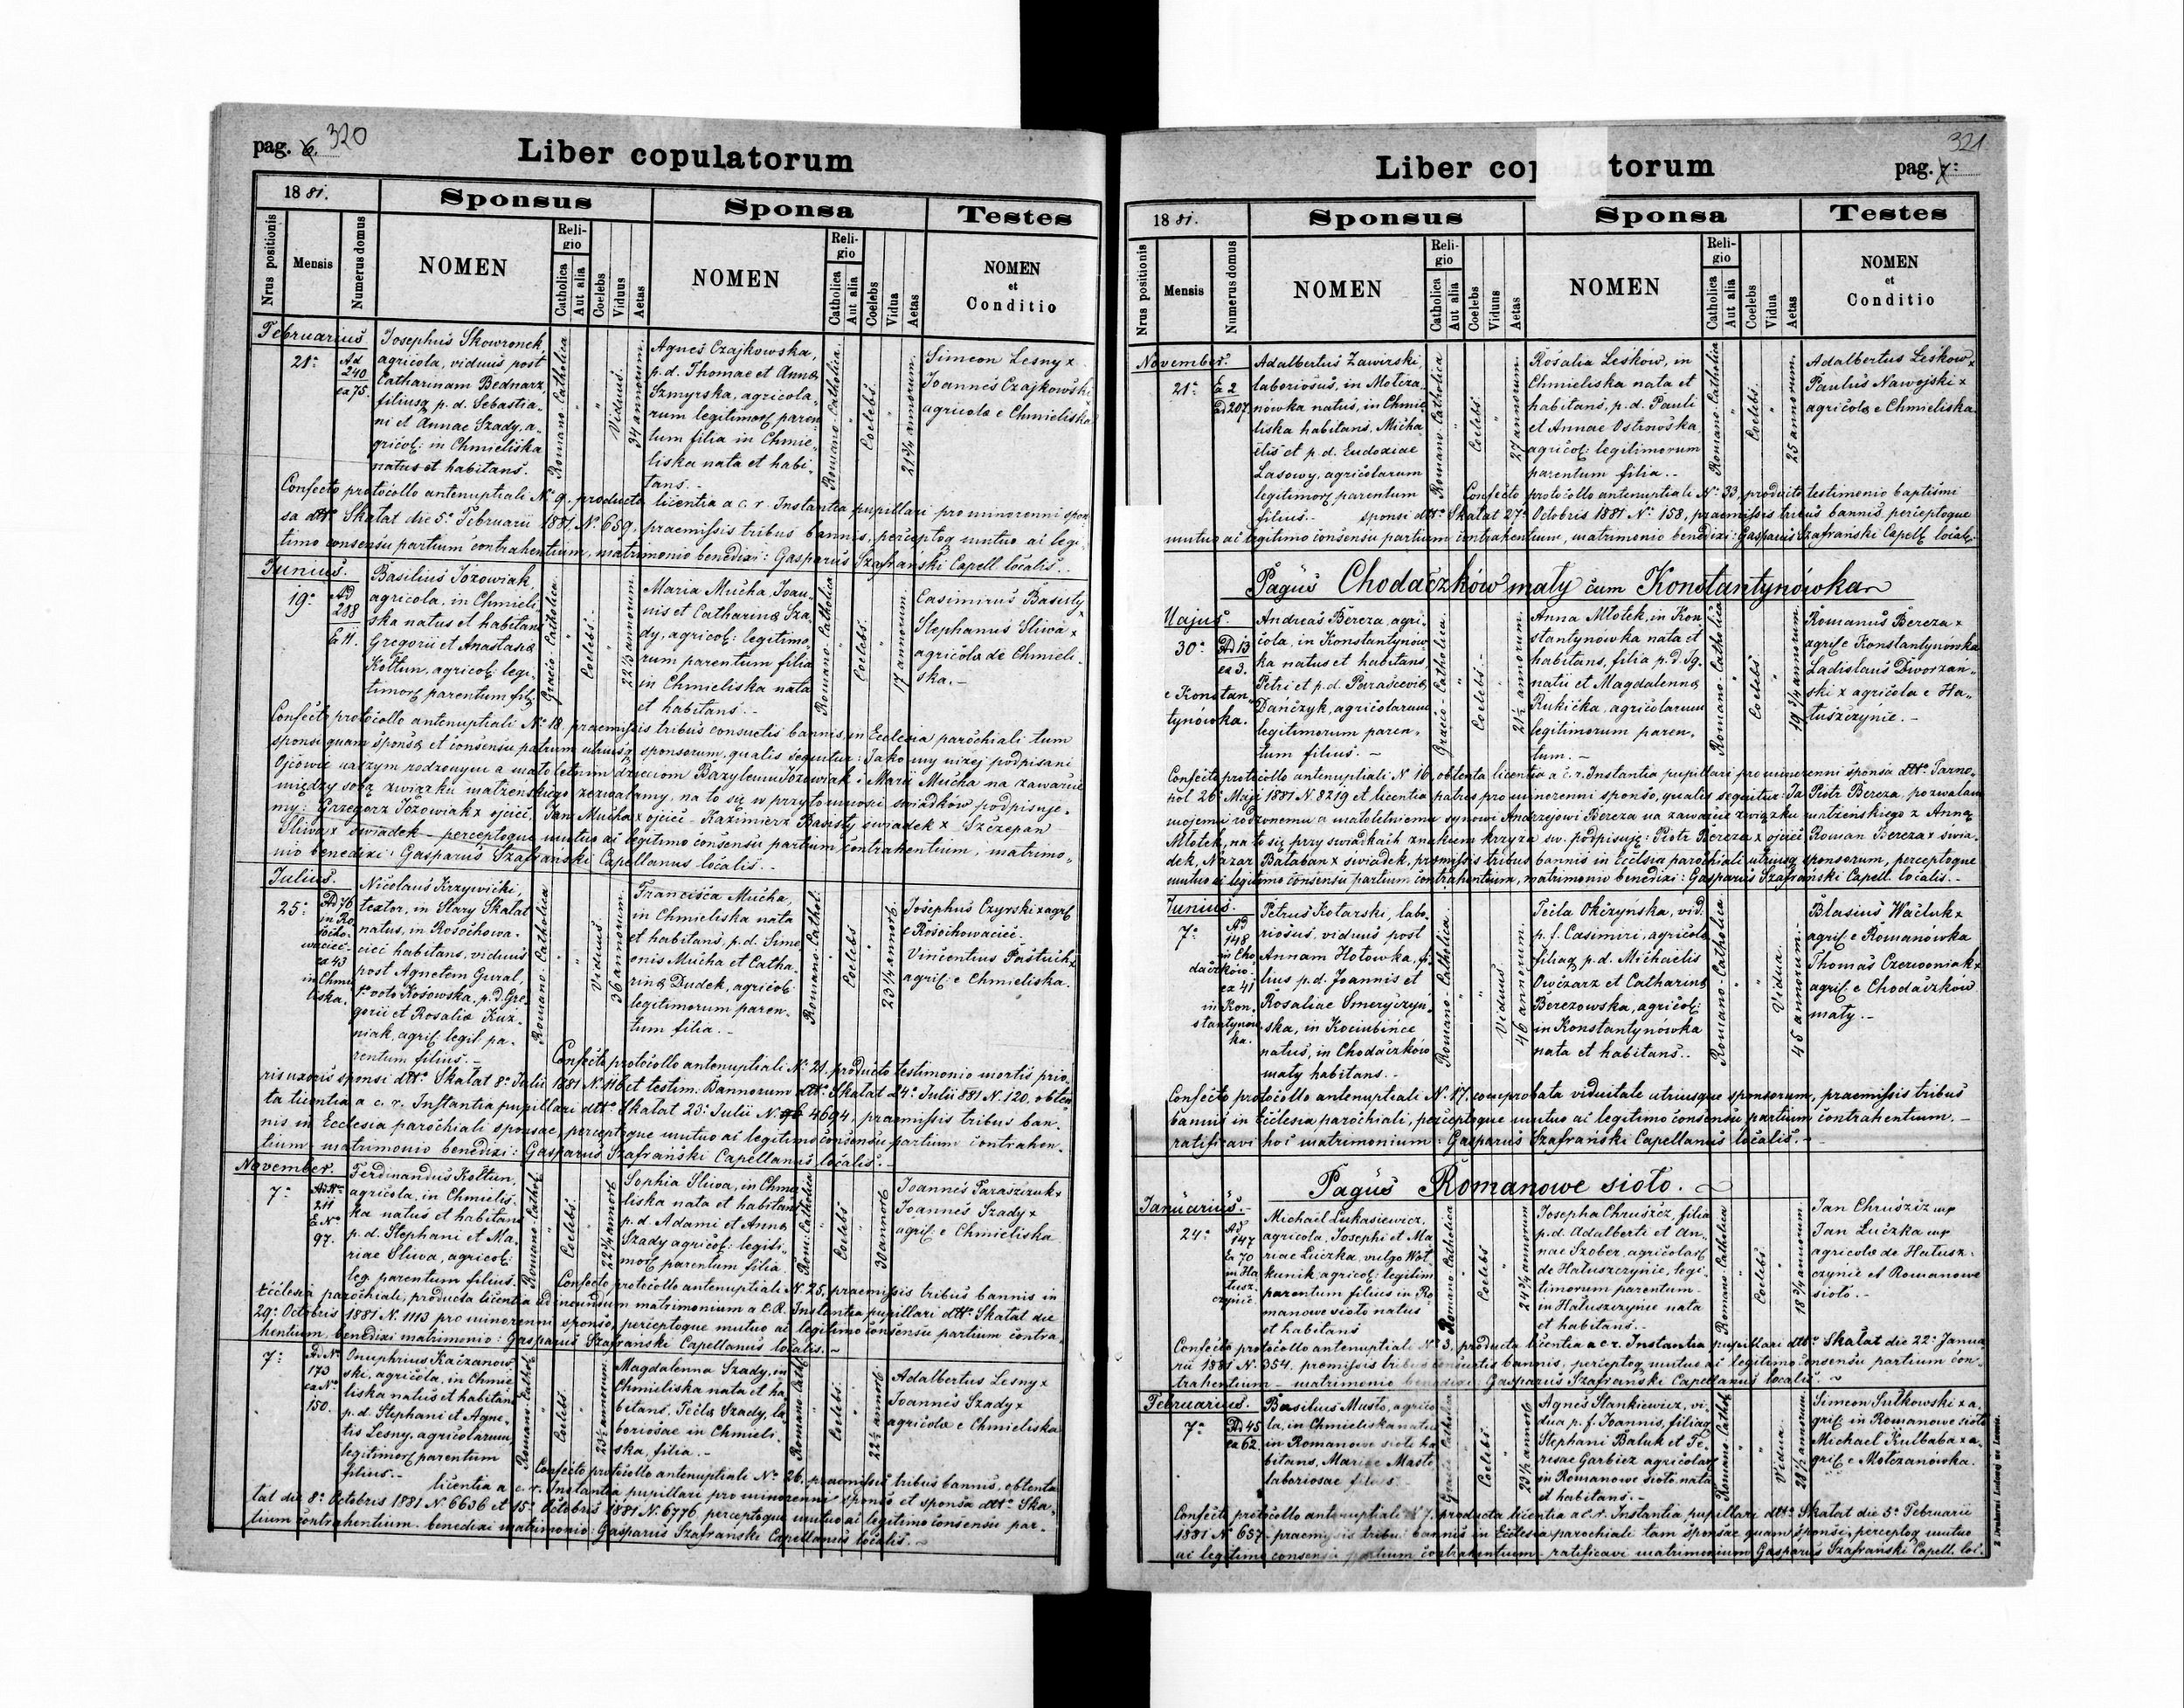 pag. 6. 320
Liber copulatorum
1881.
Sponsus
Sponsa
Testes
Nrus positionis
Mensis
Numerus domus
NOMEN
Religio
Catholica
Aut alia
Coelebs
Viduus
Aetas
NOMEN
Religio
Catholica
Aut alia
Coelebs
Vidua
Aetas
NOMEN
et
Conditio
Februarius
21a
Ad
240
ea 75.
Josephus Skowronek
agricola, viduus post
Catharinam Bednarz,
filiusq p.d. Sebastia-
ni et Annae Szady, a-
gricol: in Chmieliska
natus et habitans.
Romano-Catholica
"
"
Viduus.
34 annorum.
Agnes Czajkowska,
p.d. Thomae et Annae
Szmyrska, agricola-
rum legitimor paren-
tum filia in Chmie-
liska nata et habi-
tans.-
Romano-Catholica.
"
Coelebs.
"
21 3/4 annorum.
Simeon Lesny x
Joannes Czajkowski
agricolae Chmieliska
Confecto protocollo antenuptiali No 9, producta licentia a c. r. Instantia pupillari pro minorenni spon-
sa dtto Skałat die 5a Februarii 1881 No 659, praemissis tribus bannis, perceptoq mutuo ac legi-
timo consensu partium contrahentium, matrimonio benedixi: Gasparus Szafrański Capell. localis.-
Junius.
19a
Ad
288
Ea 11.
Basilius Jozowiak,
agricola, in Chmieli-
ska natus et habitans
Gregorii et Anastasiae
Kołtun, agricol: legi-
timor parentum fil:
Graeco-Catholica
"
Coelebs.
"
22 1/3 annorum.
Maria Mucha, Joan-
nis et Catharinae Sza-
dy, agricol: legitimo-
rum parentum filia
in Chmieliska nata
et habitans.-
Romano-Catholica
"
Coelebs.
"
17 annorum.
Casimirus Basisty x
Stephanus Sliwa x
agricolae de Chmieli-
ska.-
Confecto protocollo antenuptiali No 18, praemissis tribus consuetis bannis, in Ecclesia parochiali tum
sponsi quam sponsae et consensu patrum utriusq sponsorum, qualis sequitur: Jako my niżej podpisani
Ojcowie naszym rodzonym a małoletnim dzieciom Bazylemu Jozowiak i Marii Mucha na zawarcie
między sobą związku małżeńskiego zezwalamy, na to się w przytomności świadków podpisuje-
my: Grzegorz Jozowiak x ojciec, Jan Mucha x ojciec - Kazimierz Basisty świadek x Szczepan
Sliwa x świadek - perceptoque mutuo ac legitimo consensu partium contrahentium, matrimo-
nio benedixi: Gasparus Szafrański Capellanus localis.-
Julius.
25a
Ad 76
in Ro-
socho-
waciec
ea 43
in Chmie-
liska.
Nicolaus Krzywicki,
textor, in Stary Skałat
natus, in Rosochowa-
ciec habitans, viduus
post Agnetem Gural,
1o voto Kosowska, p.d. Gre-
gorii et Rosaliae Kuź-
niak, agric. legit. pa-
rentum filius.-
Romano-Catholica
"
"
Viduus.
36 annorum.
Francisca Mucha,
in Chmieliska nata
et habitans, p.d. Sime-
onis Mucha et Catha-
rinae Dudek, agricol:
legitimorum paren-
tum filia.-
Romano-Cathol:
"
Coelebs
"
23 1/4 annor.
Josephus Czyrski x agric
e Rosochowaciec.
Vincentius Pastuch x
agric: e Chmieliska.
Confecto protocollo antenuptiali No 21, producto testimonio mortis prio-
ris uxoris sponsi dtto Skałat 8a Julii 1881 N. 116 et testim. Bannorum dtto Skałat 24a Julii 881 N. 120, obten-
ta licentia a c. r. Instantia pupillari dtto Skałat 23a Julii N. 4694, praemissis tribus ban-
nis in Ecclesia parochiali sponsae, perceptoque mutuo ac legitimo consensu partium contrahen-
tium - matrimonio benedixi: Gasparus Szafrański Capellanus localis.-
November.
7a
Ad No
211
E No
97.
Ferdinandus Kołtun,
agricola, in Chmielis-
ka natus et habitans
p.d. Stephani et Ma-
riae Sliwa, agricol:
leg. parentum filius.
Romano-Cathol:
"
Coelebs.
"
22 3/4 annor
Sophia Sliwa, in Chmie-
liska nata et habitans
p.d. Adami et Annae
Szady agricol: legiti-
mor parentum filia.
Rom: Catholica
"
Coelebs
"
30 annor
Joannes Taraszczuk x
Joannes Szady x
agric: e Chmieliska
Confecto protocollo antenuptiali N. 25, praemissis tribus bannis in
Ecclesia parochiali, producta licentia ad ineundum matrimonium a C. R. Instantia pupillari dtto Skałat die
29a Octobris 1881 N. 1113 pro minorenni sponso, perceptoque mutuo ac legitimo consensu partium contra-
hentium, benedixi matrimonio: Gasparus Szafrański Capellanus localis.-
7a
Ad No
173
ea No
150.
Onuphrius Kaczanow-
ski, agricola, in Chmie-
liska natus et habitans
p.d. Stephani et Agne-
tis Lesny, agricolarum
legitimor parentum
filius.-
Romano-Cathol:
"
Coelebs.
"
23 1/2 annorum.
Magdalenna Szady, in
Chmieliska nata et ha-
bitans, Teclae Szady, la-
boriosae in Chmieli-
ska, filia.-
Romano-Cathol
"
Coelebs.
"
22 1/2 annor
Adalbertus Lesny x
Joannes Szady x
agricolae e Chmieliska
Confecto protocollo antenuptiali No 26, praemissis tribus bannis, obtenta
licentia a c. r. Instantia pupillari pro minorenni sponso et sponsa dtto Ska-
łat die 8a Octobris 1881 N. 6636 et 15a Octobris 1881 N. 6776, perceptoque mutuo ac legitimo consensu par-
tium contrahentium - benedixi matrimonio: Gasparus Szafrański Capellanus localis.-
321
Liber cop torum
pag. 7.
1881.
Sponsus
Sponsa
Testes
Nrus positionis
Mensis
Numerus domus
NOMEN
Religio
Catholica
Aut alia
Coelebs
Viduus
Aetas
NOMEN
Religio
Catholica
Aut alia
Coelebs
Vidua
Aetas
NOMEN
et
Conditio
November.
21a
Ea 2
Ad 207
Adalbertus Zawirski,
laboriosus, in Mołcza-
nówka natus, in Chmie-
liska habitans, Micha-
elis et p.d. Eudoxiae
Lasowy, agricolarum
legitimor parentum
filius.-
Romano-Catholica
"
Coelebs.
"
27 annorum
Rosalia Leśków, in
Chmieliska nata et
habitans, p.d. Pauli
et Annae Ostrowska
agricol: legitimorum
parentum filia.-
Romano-Catholica
"
Coelebs.
"
25 annorum.
Adalbertus Leśkow x
Paulus Nawojski x
agricolae Chmieliska
Confecto protocollo antenuptiali No 33, producto testimonio baptismi
sponsi dtto Skałat 27a Octobris 1881 No 158, praemissis tribus bannis, perceptoque
mutuo ac legitimo consensu partium contrahentium, matrimonio benedixi: Gasparus Szafrański Capell: local:
Pagus Chodaczków mały cum Konstantynówka
Majus.
30a
Ad 13
ea 3.
e Konstan-
tynówka.
Andreas Bereza, agri-
cola, in Konstantynów-
ka natus et habitans,
Petri et p.d. Parasceviae
Dańczyk, agricolarum
legitimorum paren-
tum filius.-
Graeco-Catholica.
"
Coelebs.-
"
21 1/2 annorum.
Anna Młotek, in Kon-
stantynowka nata et
habitans, filia p.d. Ig-
natii et Magdalennae
Rukicka, agricolarum
legitimorum paren-
tum.-
Romano-Catholica
"
Coelebs
"
19 3/4 annorum.
Romanus Bereza x
agric: e Konstantynówka
Ladislaus Dworzań-
ski x agricola e Ha-
łuszczynie.-
Confecto protocollo antenuptiali N. 16, obtenta licentia a c. r. Instantia pupillari pro minorenni sponsa dtto Tarno-
pol 26a Maji 1881 N. 8219 et licentia patris pro minorenni sponso, qualis sequitur: Ja Piotr Bereza, pozwalam
mojemu rodzonemu a małoletniemu synowi Andrzejowi Bereza na zawarcie związku małżeńskiego z Anną
Młotek, na to się przy świadkach znakiem krzyża św. podpisuję: Piotr Bereza x ojciec Roman Bereza x świa-
dek, Nazar Bałaban x świadek, praemissis tribus bannis in Ecclesia parochiali utriusq sponsorum, perceptoque
mutuo ac legitimo consensu partium contrahentium, matrimonio benedixi: Gasparus Szafrański Capell. localis.-
Junius.
7a
Ad
148
in Cho-
daczków-
ea 41
in Kon-
stantynow-
ka.
Petrus Kotarski, labo-
riosus, viduus post
Annam Hołowka, fi-
lius p.d. Joannis et
Rosaliae Smeryczyń-
ska, in Kociubińce
natus, in Chodaczków
mały habitans.-
Romano-Catholica.
"
"
Viduus.
46 annorum.
Tecla Okczyńska, vid.
p. f. Casimiri, agricolae
filiaq p.d. Michaelis
Owczarz et Catharinae
Berezowska, agricol:
in Konstantynówka
nata et habitans.-
Romano-Catholica.
"
"
Vidua.
45 annorum.-
Blasius Wacluk x
agric: e Romanówka
Thomas Czerwoniak x
agric: e Chodaczków
mały.-
Confecto protocollo antenuptiali N. 17, comprobata viduitate utriusque sponsorum, praemissis tribus
bannis in Ecclesia parochiali, perceptoque mutuo ac legitimo consensu partium contrahentium.-
ratificavi hoc matrimonium: Gasparus Szafrański Capellanus localis.-
Pagus Romanowe sioło.
Januarius.
24a
Ad
147
Ea 70
in Ha-
łusz-
czynie.
Michael Łukasiewicz,
agricola, Josephi et Ma-
riae Łuczka, vulgo Woł-
kunik, agricol: legitim
parentum filius in Ro-
manowe sioło natus
et habitans
Romano-Catholica
"
Coelebs
"
24 3/4 annorum
Josepha Chruszcz, filia
p.d. Adalberti et An-
nae Szober, agricolar
de Hałuszczynie, legi-
timorum parentum
in Hałuszczynie nata
et habitans.-
Romano-Catholica
"
Coelebs.
"
18 3/4 annorum.
Jan Chruściz mp
Jan Łuczka mp
agricolae de Hałusz-
czynie et Romanowe
sioło.-
Confecto protocollo antenuptiali No 3, producta licentia a c. r. Instantia pupillari dtto Skałat die 22a Janua-
rii 1881 N. 354, premissis tribus consuetis bannis, perceptoq mutuo ac legitimo consensu partium con-
trahentium - matrimonio benedixi: Gasparus Szafrański Capellanus localis.
Februarius.
7a
Ad 45
ea 62.
Basilius Musło, agrico-
la, in Chmieliska natus
in Romanowe sioło ha-
bitans, Mariae Masło
laboriosae filius
Graeco-Catholica
"
Coelebs.
"
23 1/2 annor
Agnes Stankiewicz, vi-
dua p. f. Joannis, filiaq
Stephani Baluk et Te-
resae Garbicz agricolar
in Romanowe sioło nata
et habitans.-
Romano-Cathol
"
"
Vidua.
28 1/2 annorum.
Simeon Sułkowski x a-
gric: in Romanowe sioło
Michael Kulbaba x a-
gric: e Mołczanówka.
Confecto protocollo antenuptiali N. 7, producta licentia a c. r. Instantia pupillari dtto Skałat die 5a Februarii
1881 No 657 - praemissis tribus bannis in Ecclesia parochiali tam sponsae quam sponsi, perceptoq mutuo
ac legitimo consensu partium contrahentium - ratificavi matrimonium Gasparus Szafrański Capell. loc.
Z Drukarni Ludowej we Lwowie.